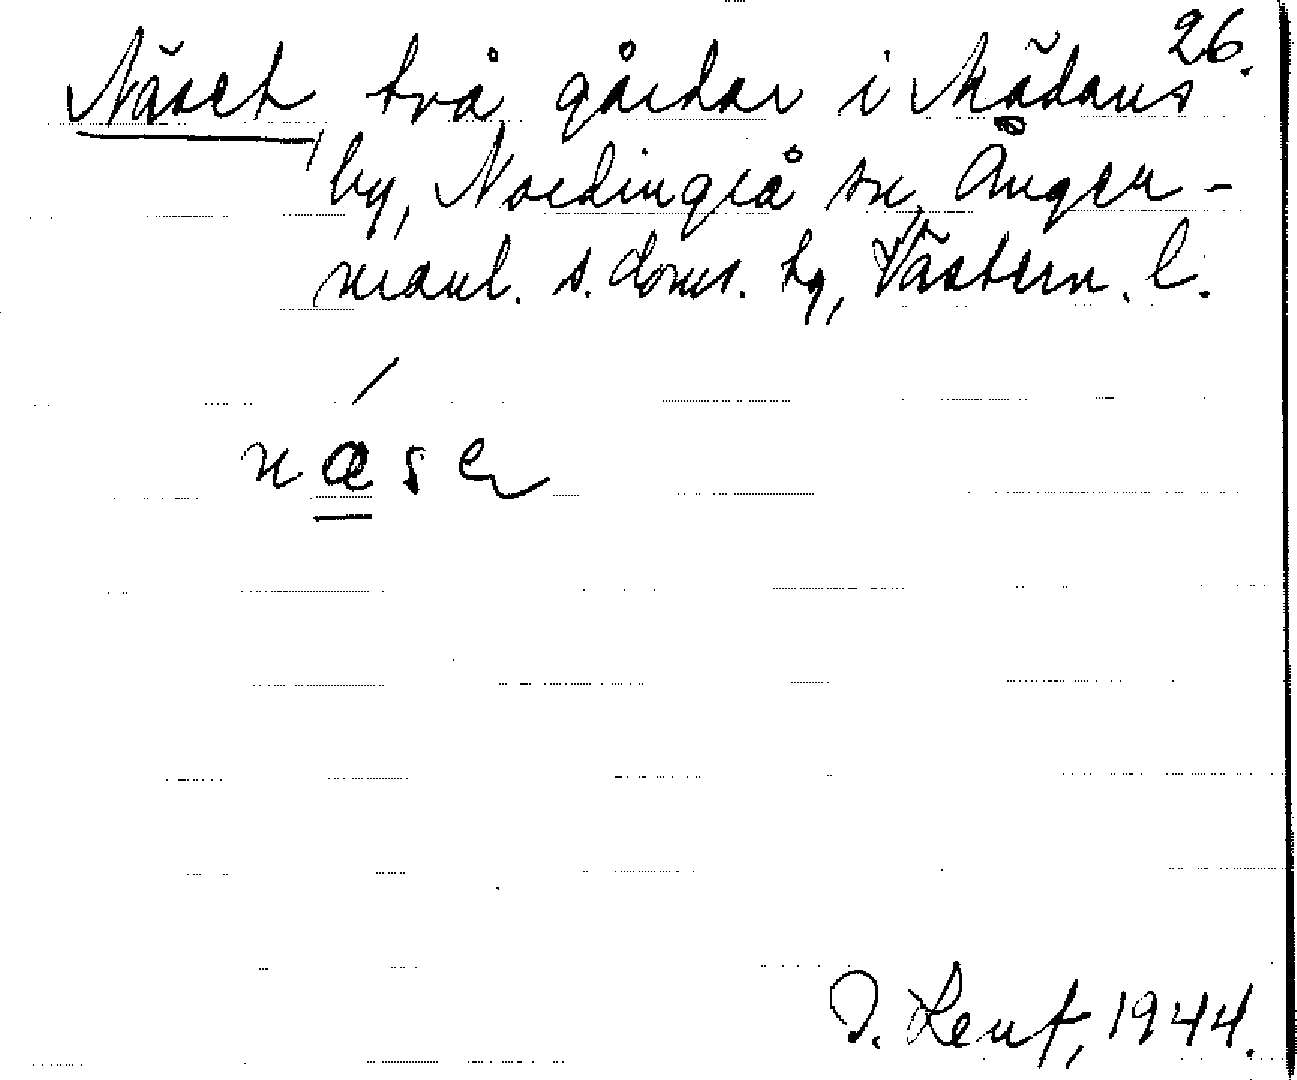 26.
Näset, två gårdar i Mädans
by, Nordingrå sn, Ånger-
manl. s. doms. hg, Västern. l.
næse
D. Lenf, 1944.